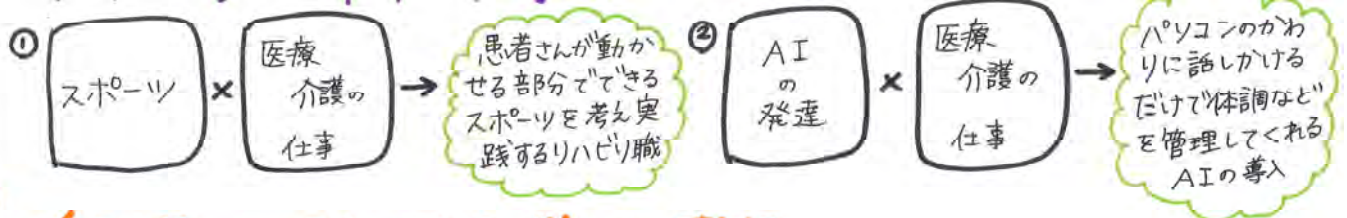 ①
スポーツ
×
医療
介護の
仕事
→
患者さんが動か
せる部分でできる
スポーツを考え実
践するリハビリ職
②
AI
の
発達
×
医療
介護の
仕事
→
パソコンのかわ
りに話しかける
だけで体調など
を管理してくれる
AIの導入